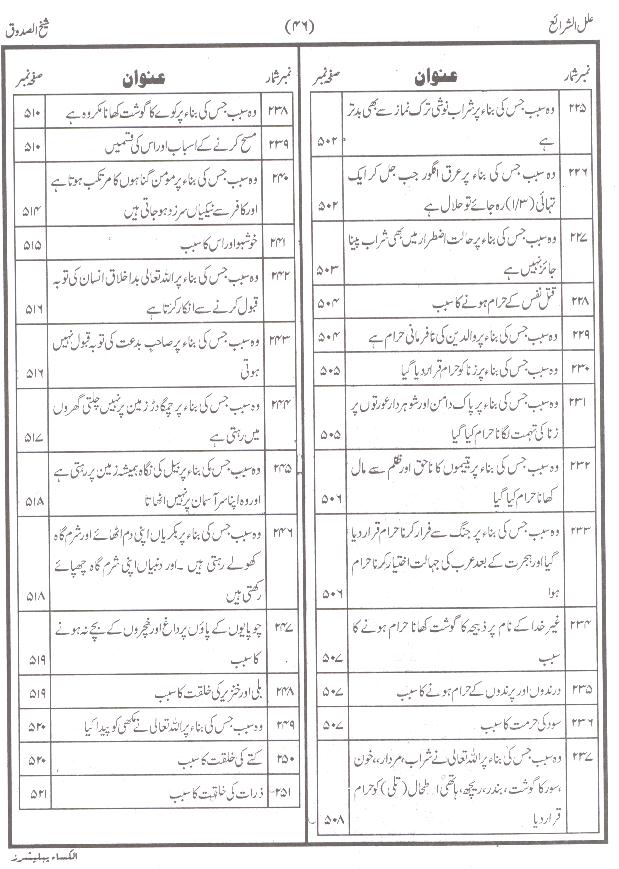 علل الشرائع (۴۶) شیخ الصدوق
نمبر شمار عنوان صفحہ نمبر
۲۲۵ وہ سبب جس کی بناء پر شراب نوشی ترک نماز سے بھی بدتر
ہے ۵۰۲
۲۲۶ وہ سبب جس کی بناء پر عرق انگور جب جل کر ایک
تہائی (۱/۳) رہ جائے تو حلال ہے ۵۰۲
۲۲۷ وہ سبب جس کی بناء پر حالت اضطرار میں بھی شراب پینا
جائز نہیں ہے ۵۰۳
۲۲۸ قتل نفس کے حرام ہونے کا سبب ۵۰۴
۲۲۹ وہ سبب جس کی بناء پر والدین کی نافرمانی حرام ہے ۵۰۴
۲۳۰ وہ سبب جس کی بناء پر زنا کو حرام قرار دیا گیا ۵۰۵
۲۳۱ وہ سبب جس کی بناء پر پاک دامن اور شوہر دار عورتوں پر
زنا کی تہمت لگانا حرام کیا گیا ۵۰۵
۲۳۲ وہ سبب جس کی بناء پر یتیموں کا ناحق اور ظلم سے مال
کھانا حرام کیا گیا ۵۰۶
۲۳۳ وہ سبب جس کی بناء پر جنگ سے فرار کرنا حرام قرار دیا
گیا اور ہجرت کے بعد عرب کی جہالت اختیار کرنا حرام
ہوا ۵۰۶
۲۳۴ غیر خدا کے نام پر ذبیحہ کا گوشت کھانا حرام ہونے کا
سبب ۵۰۷
۲۳۵ درندوں اور پرندوں کے حرام ہونے کا سبب ۵۰۷
۲۳۶ سود کی حرمت کا سبب ۵۰۷
۲۳۷ وہ سبب جس کی بناء پر اللہ تعالی نے شراب، مردار، خون
،سور کا گوشت، بندر، ریچھ، ہاتھی، اطحال (تلی) کو حرام
قرار دیا ۵۰۸
نمبر شمار عنوان صفحہ نمبر
۲۳۸ وہ سبب جس کی بناء پر کوے کا گوشت کھانا مکروہ ہے ۵۱۰
۲۳۹ مسخ کرنے کے اسباب اور اس کی قسمیں ۵۱۰
۲۴۰ وہ سبب جس کی بناء پر مومن گناہوں کا مرتکب ہوتا ہے
اور کافر سے نیکیاں سرزد ہو جاتی ہیں ۵۱۴
۲۴۱ خوشبو اور اس کا سبب ۵۱۵
۲۴۲ وہ سبب جس کی بناء پر اللہ تعالی بد اخلاق انسان کی توبہ
قبول کرنے سے انکار کرتا ہے ۵۱۶
۲۴۳ وہ سبب جس کی بناء پر صاحب بدعت کی توبہ قبول نہیں
ہوتی ۵۱۶
۲۴۴ وہ سبب جس کی بناء پر چمگادڑ زمین پر نہیں چلتی گھروں
میں رہتی ہے ۵۱۷
۲۴۵ وہ سبب جس کی بناء پر بیل کی نگاہ ہمیشہ زمین پر رہتی ہے
اور وہ اپنا سر آسمان پر نہیں اٹھاتا ۵۱۸
۲۴۶ وہ سبب جس کی بناء پر بکریاں اپنی دم اٹھائے اور شرم گاہ
کھولے رہتی ہیں ۔ اور دنبیاں اپنی شرم گاہ چھپائے
رکھتی ہیں ۵۱۸
۲۴۷ چوپایوں کے پاؤں پر داغ اور خچروں کے بچے نہ ہونے
کا سبب ۵۱۹
۲۴۸ بلی اور خنزیر کی خلقت کا سبب ۵۱۹
۲۴۹ وہ سبب جس کی بناء پر اللہ تعالی نے مکھی کو پیدا کیا ۵۲۰
۲۵۰ کتے کی خلقت کا سبب ۵۲۰
۲۵۱ ذرات کی خلقت کا سبب ۵۲۱
الکساء پبلیشرز